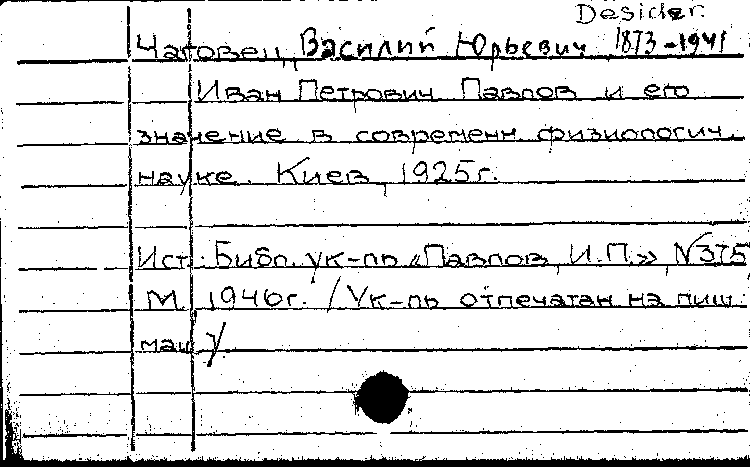 Desider.
Чаговец, Василий Юрьевич 1873-1941
Иван Петрович Павлов и его
значение в современн. физиологич.
науке. Киев, 1925г.
Ист.: Библ. ук-ль «Павлов, И.П.», №375
М. 1946г. /Ук-ль отпечатан на пиш.
маш/.